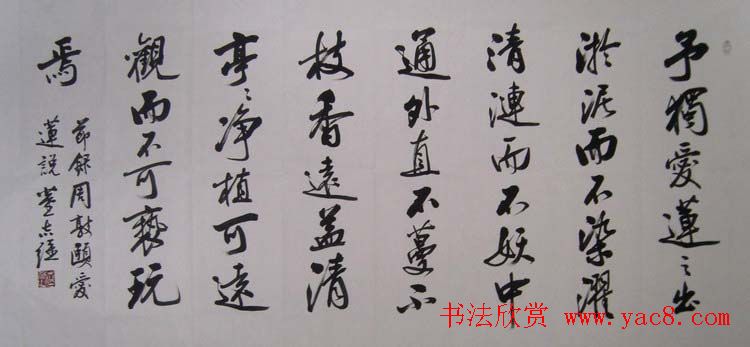 予獨愛蓮之出
淤泥而不染濯
清漣而不妖中
通外直不蔓不
枝香遠益清
亭亭净植可遠
觀而不可褻玩
焉
節錄周敦頤愛
蓮說
书法欣赏 www.yac8.com